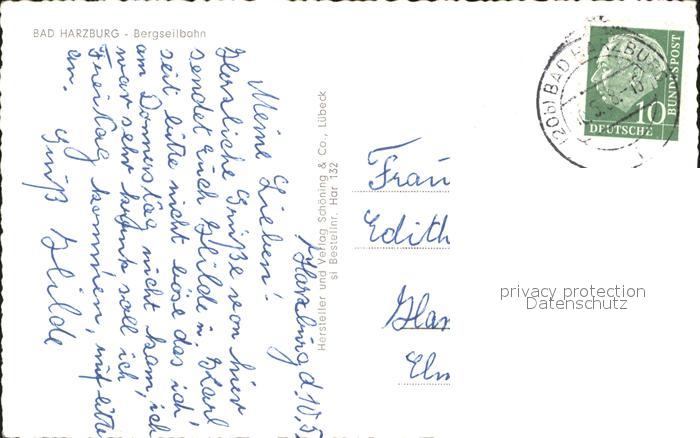 BAD HARZBURG - Bergseilbahn
Harzburg d 10.5
Meine Lieben!
Herzliche Grüße von hier
sendet Euch Hilde u. Karl
seit bitte nicht böse das ich
am Donnerstag nicht kam, ich
war sehr soll ich
Freitag kommen, ruf bitte
an. Gruß Hilde
Hersteller und Verlag Schöning & Co., Lübeck
si Bestellnr. Har 132
(20b) BAD HARZBURG
10
DEUTSCHE
BUNDESPOST
Frau
Edith
Ham
Elm
privacy protection
Datenschutz